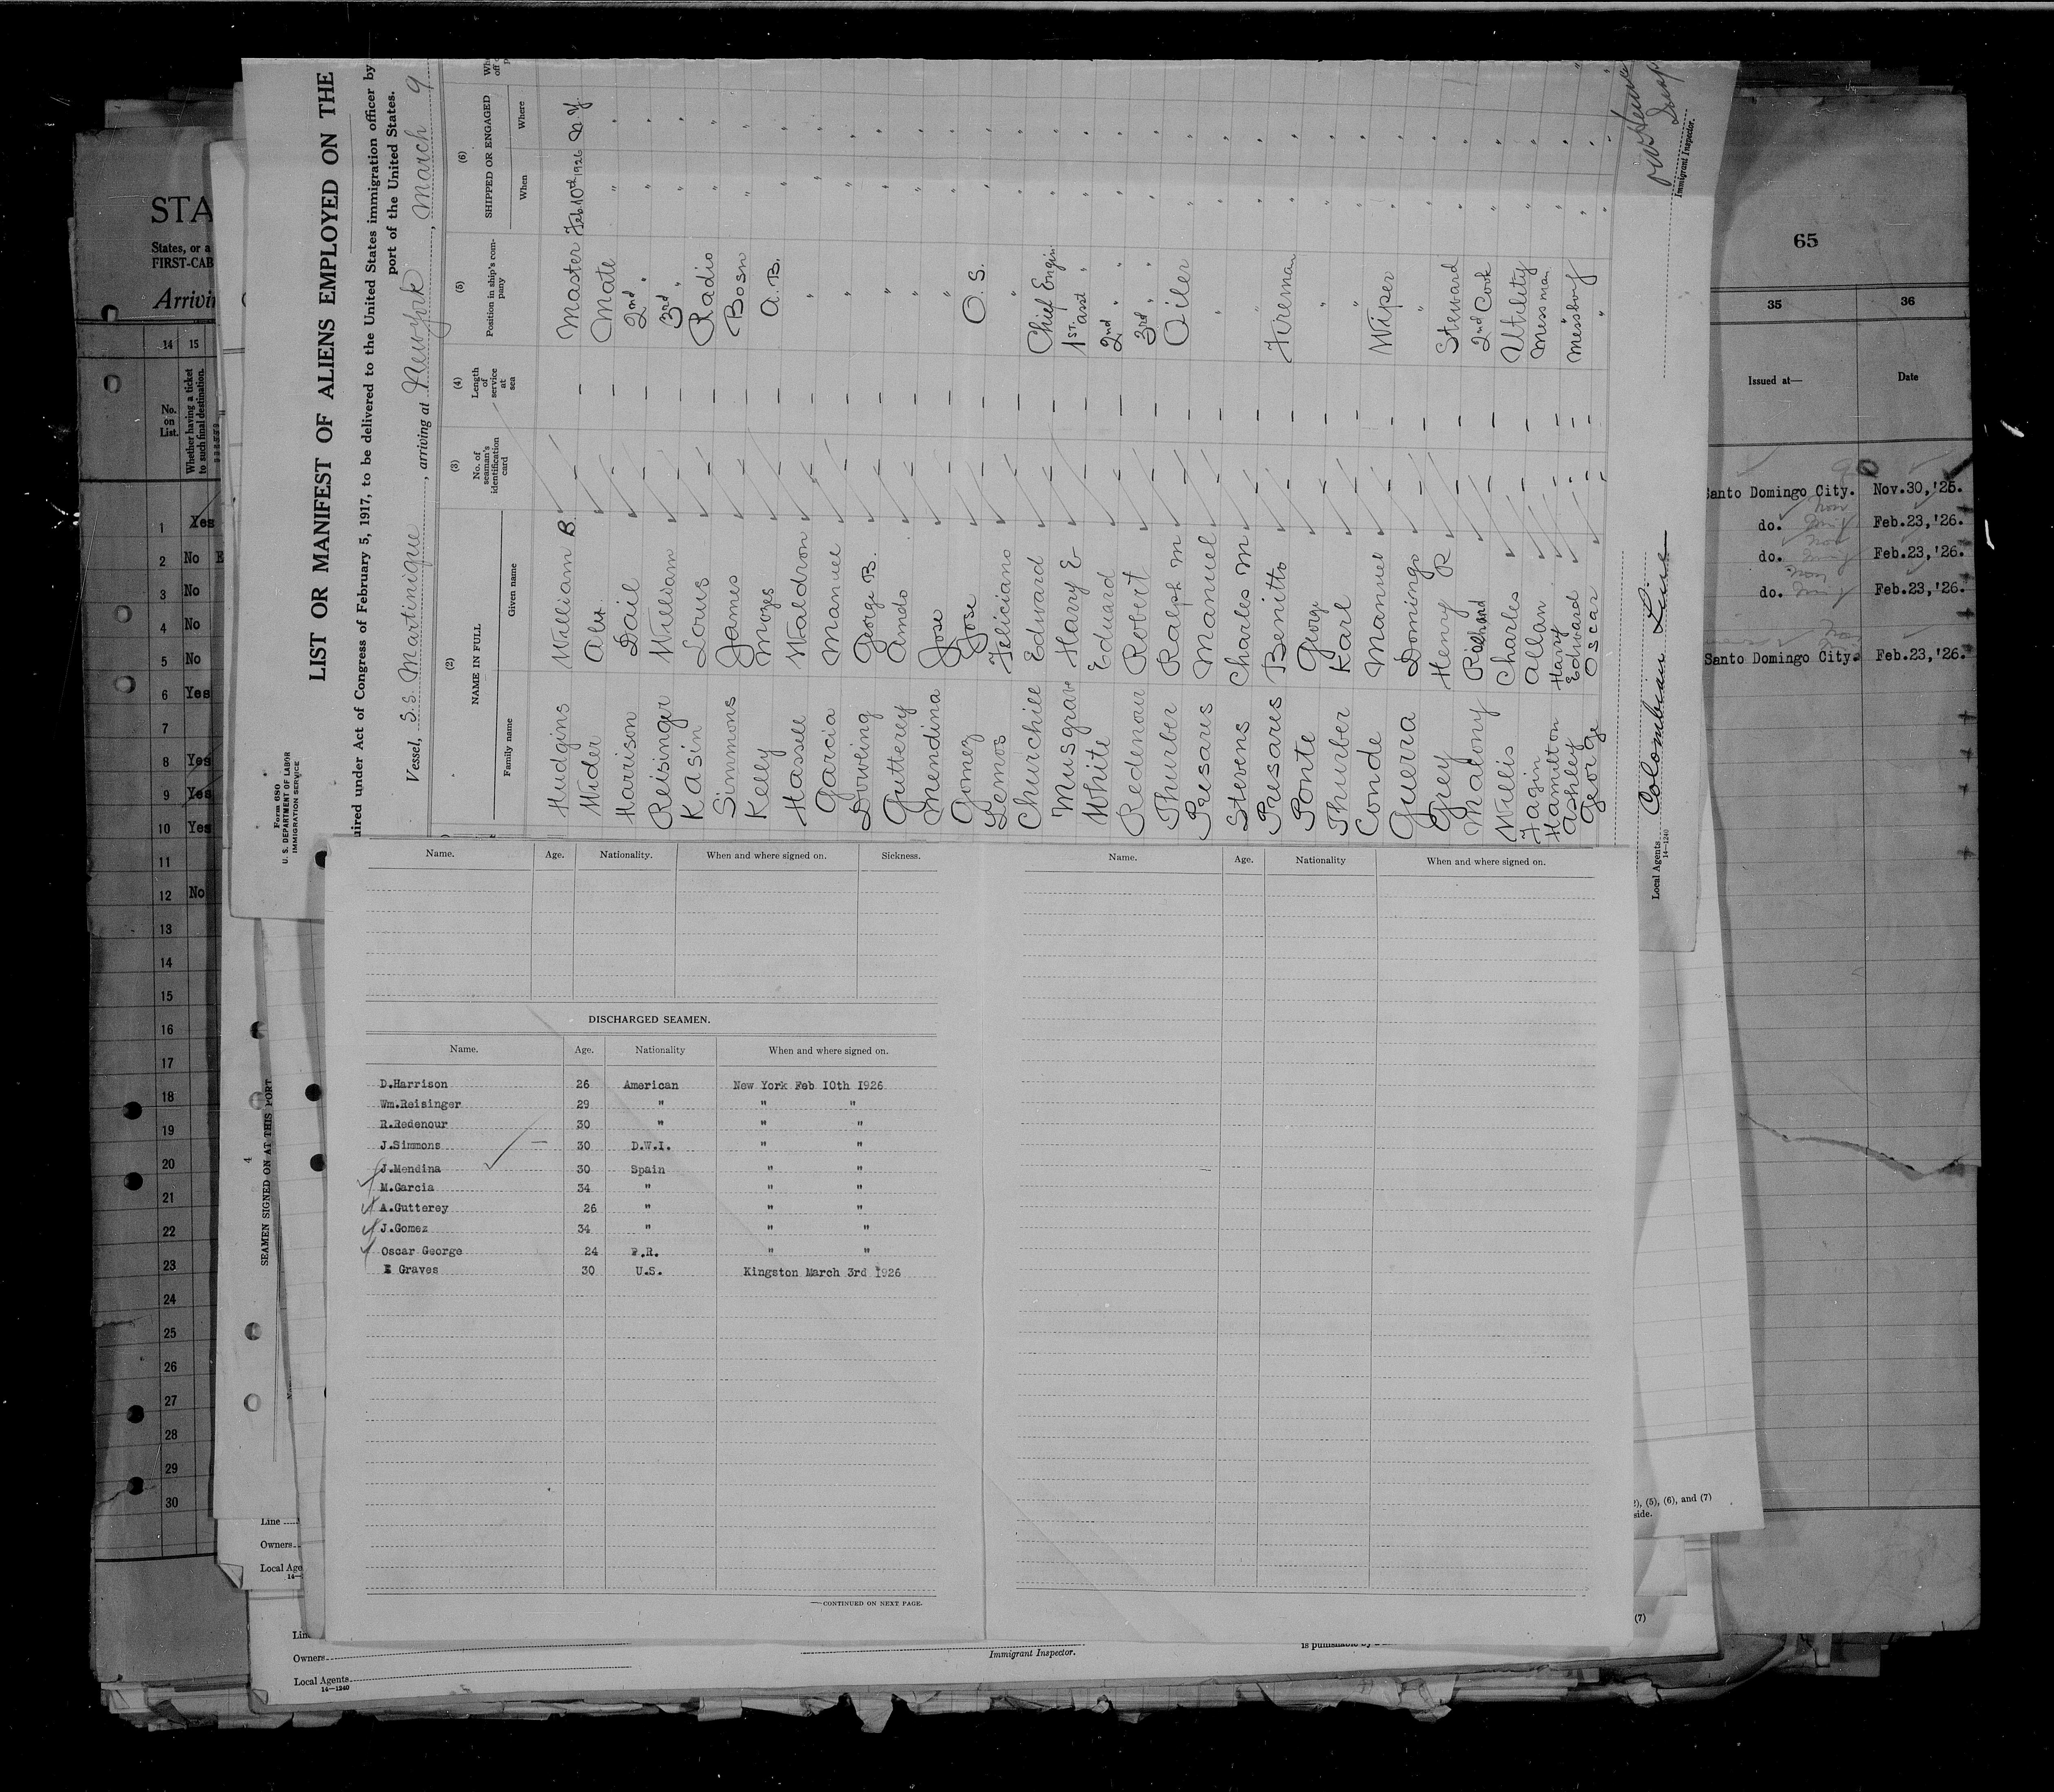 STA
States, or a
FIRST-CAB
Arrivi
14 15
No. on List.
Whether having a ticket to such final destination.
1 Yes
2 No E
3 No
4 No
5 No
6 Yes
7
8 Yes
9 Yes
10 Yes
11
12 No
13
14
15
16
17
18
19
20
21
22
23
24
25
26
27
28
29
30
Form 680
U. S. DEPARTMENT OF LABOR
IMMIGRATION SERVICE
LIST OR MANIFEST OF ALIENS EMPLOYED ON THE
uired under Act of Congress of February 5, 1917, to be delivered to the United States immigration officer by
port of the United States.
Vessel, S.S. Martinique, arriving at New York, March 9
(2) (3) (4) (5) (6)
NAME IN FULL
Family name Given name
No. of seaman's identification card
Length of service at sea
Position in ship's company
SHIPPED OR ENGAGED
When Where
Hudgins William B. — — Master Feb 10th 1926 N.Y.
Wider Alex — — Mate " "
Harrison Dail — — 2nd " " "
Reisinger William — — 3rd " " "
Kasin Louis — — Radio " "
Simmons James — — Bosn " "
Kelly Mozes — — A.B. " "
Hassell Waldron — — " " "
Garcia Manuel — — " " "
Dowling George B. — — " " "
Gutterey Amdo — — " " "
Mendina Jose — — " " "
Gomez Jose — — O.S. " "
Lemos Feliciano — — " " "
Churchill Edward — — Chief Engin " "
Musgrave Harry E — — 1st asst " " "
White Edward — — 2nd " " " "
Redenour Robert — — 3rd " " " "
Thurber Ralph M — — Oiler " "
Presaris Manuel — — " " "
Stevens Charles M — — " " "
Presaris Benitto — — Fireman " "
Ponte George — — " " "
Thurber Karl — — " " "
Conde Manuel — — Wiper " "
Guerra Domingo — — " " "
Grey Henry R — — Steward " "
Malony Richard — — 2nd Cook " "
Willis Charles — — Utility " "
Fagin Allan — — Messman " "
Hamilton Harry — — " " "
Ashley Edward — — Messboy " "
George Oscar — — " " "
Local Agents Colombian Line
14—1240
Immigrant Inspector.
65
35 36
Issued at— Date
Santo Domingo City. Nov.30,'25.
do. Feb.23,'26.
do. Feb.23,'26.
do. Feb.23,'26.
Santo Domingo City. Feb.23,'26.
Name. Age. Nationality. When and where signed on. Sickness.
DISCHARGED SEAMEN.
Name. Age. Nationality When and where signed on.
D.Harrison 26 American New York Feb 10th 1926
Wm.Reisinger 29 " " "
R.Redenour 30 " " "
J.Simmons 30 D.W.I. " "
J.Mendina 30 Spain " "
M.Garcia 34 " " "
A.Gutterey 26 " " "
J.Gomez 34 " " "
Oscar George 24 P.R. " "
E Graves 30 U.S. Kingston March 3rd 1926
—CONTINUED ON NEXT PAGE.
Name. Age. Nationality When and where signed on.
4
SEAMEN SIGNED ON AT THIS PORT
Line
Owners
Local Age
14—
), (5), (6), and (7)
side.
(7)
Lin
Owners
Local Agents
14—1240
Immigrant Inspector.
is punishable by